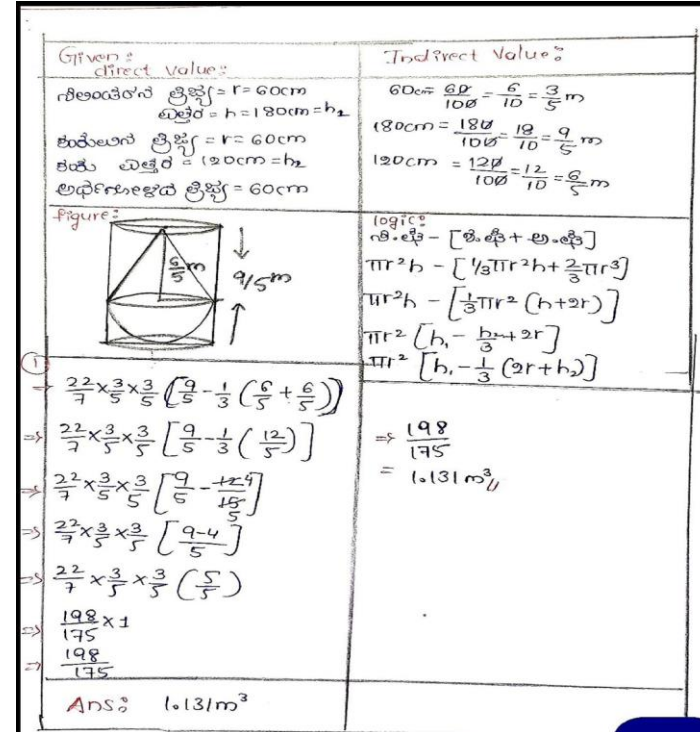 Given:
direct value:
ಸಿಲಿಂಡರಿನ ತ್ರಿಜ್ಯ = r = 60cm
ಎತ್ತರ = h = 180cm = h₂
ಶಂಕುವಿನ ತ್ರಿಜ್ಯ = r = 60cm
ಶಂಕು ಎತ್ತರ = 120cm = h₂
ಅರ್ಧಗೋಳದ ತ್ರಿಜ್ಯ = 60cm
Indirect Value:
60cm = 60/100 = 6/10 = 3/5 m
180cm = 180/100 = 18/10 = 9/5 m
120cm = 120/100 = 12/10 = 6/5 m
figure:
6/5 m
9/5 m
logic:
πr²h - [1/3πr²h + 2/3πr³]
πr²h - [1/3πr² (h+2r)]
πr² [h₁ - h₂/3 + 2r]
πr² [h₁ - 1/3 (2r+h₂)]
1
⇒ 22/7 × 3/5 × 3/5 [9/5 - 1/3 (6/5 + 6/5)]
⇒ 22/7 × 3/5 × 3/5 [9/5 - 1/3 (12/5)]
⇒ 22/7 × 3/5 × 3/5 [9/5 - 12 4/15 5]
⇒ 22/7 × 3/5 × 3/5 [9-4/5]
⇒ 22/7 × 3/5 × 3/5 (5/5)
⇒ 198/175 × 1
⇒ 198/175
⇒ 198/175
= 1.131 m³
Ans: 1.131m³